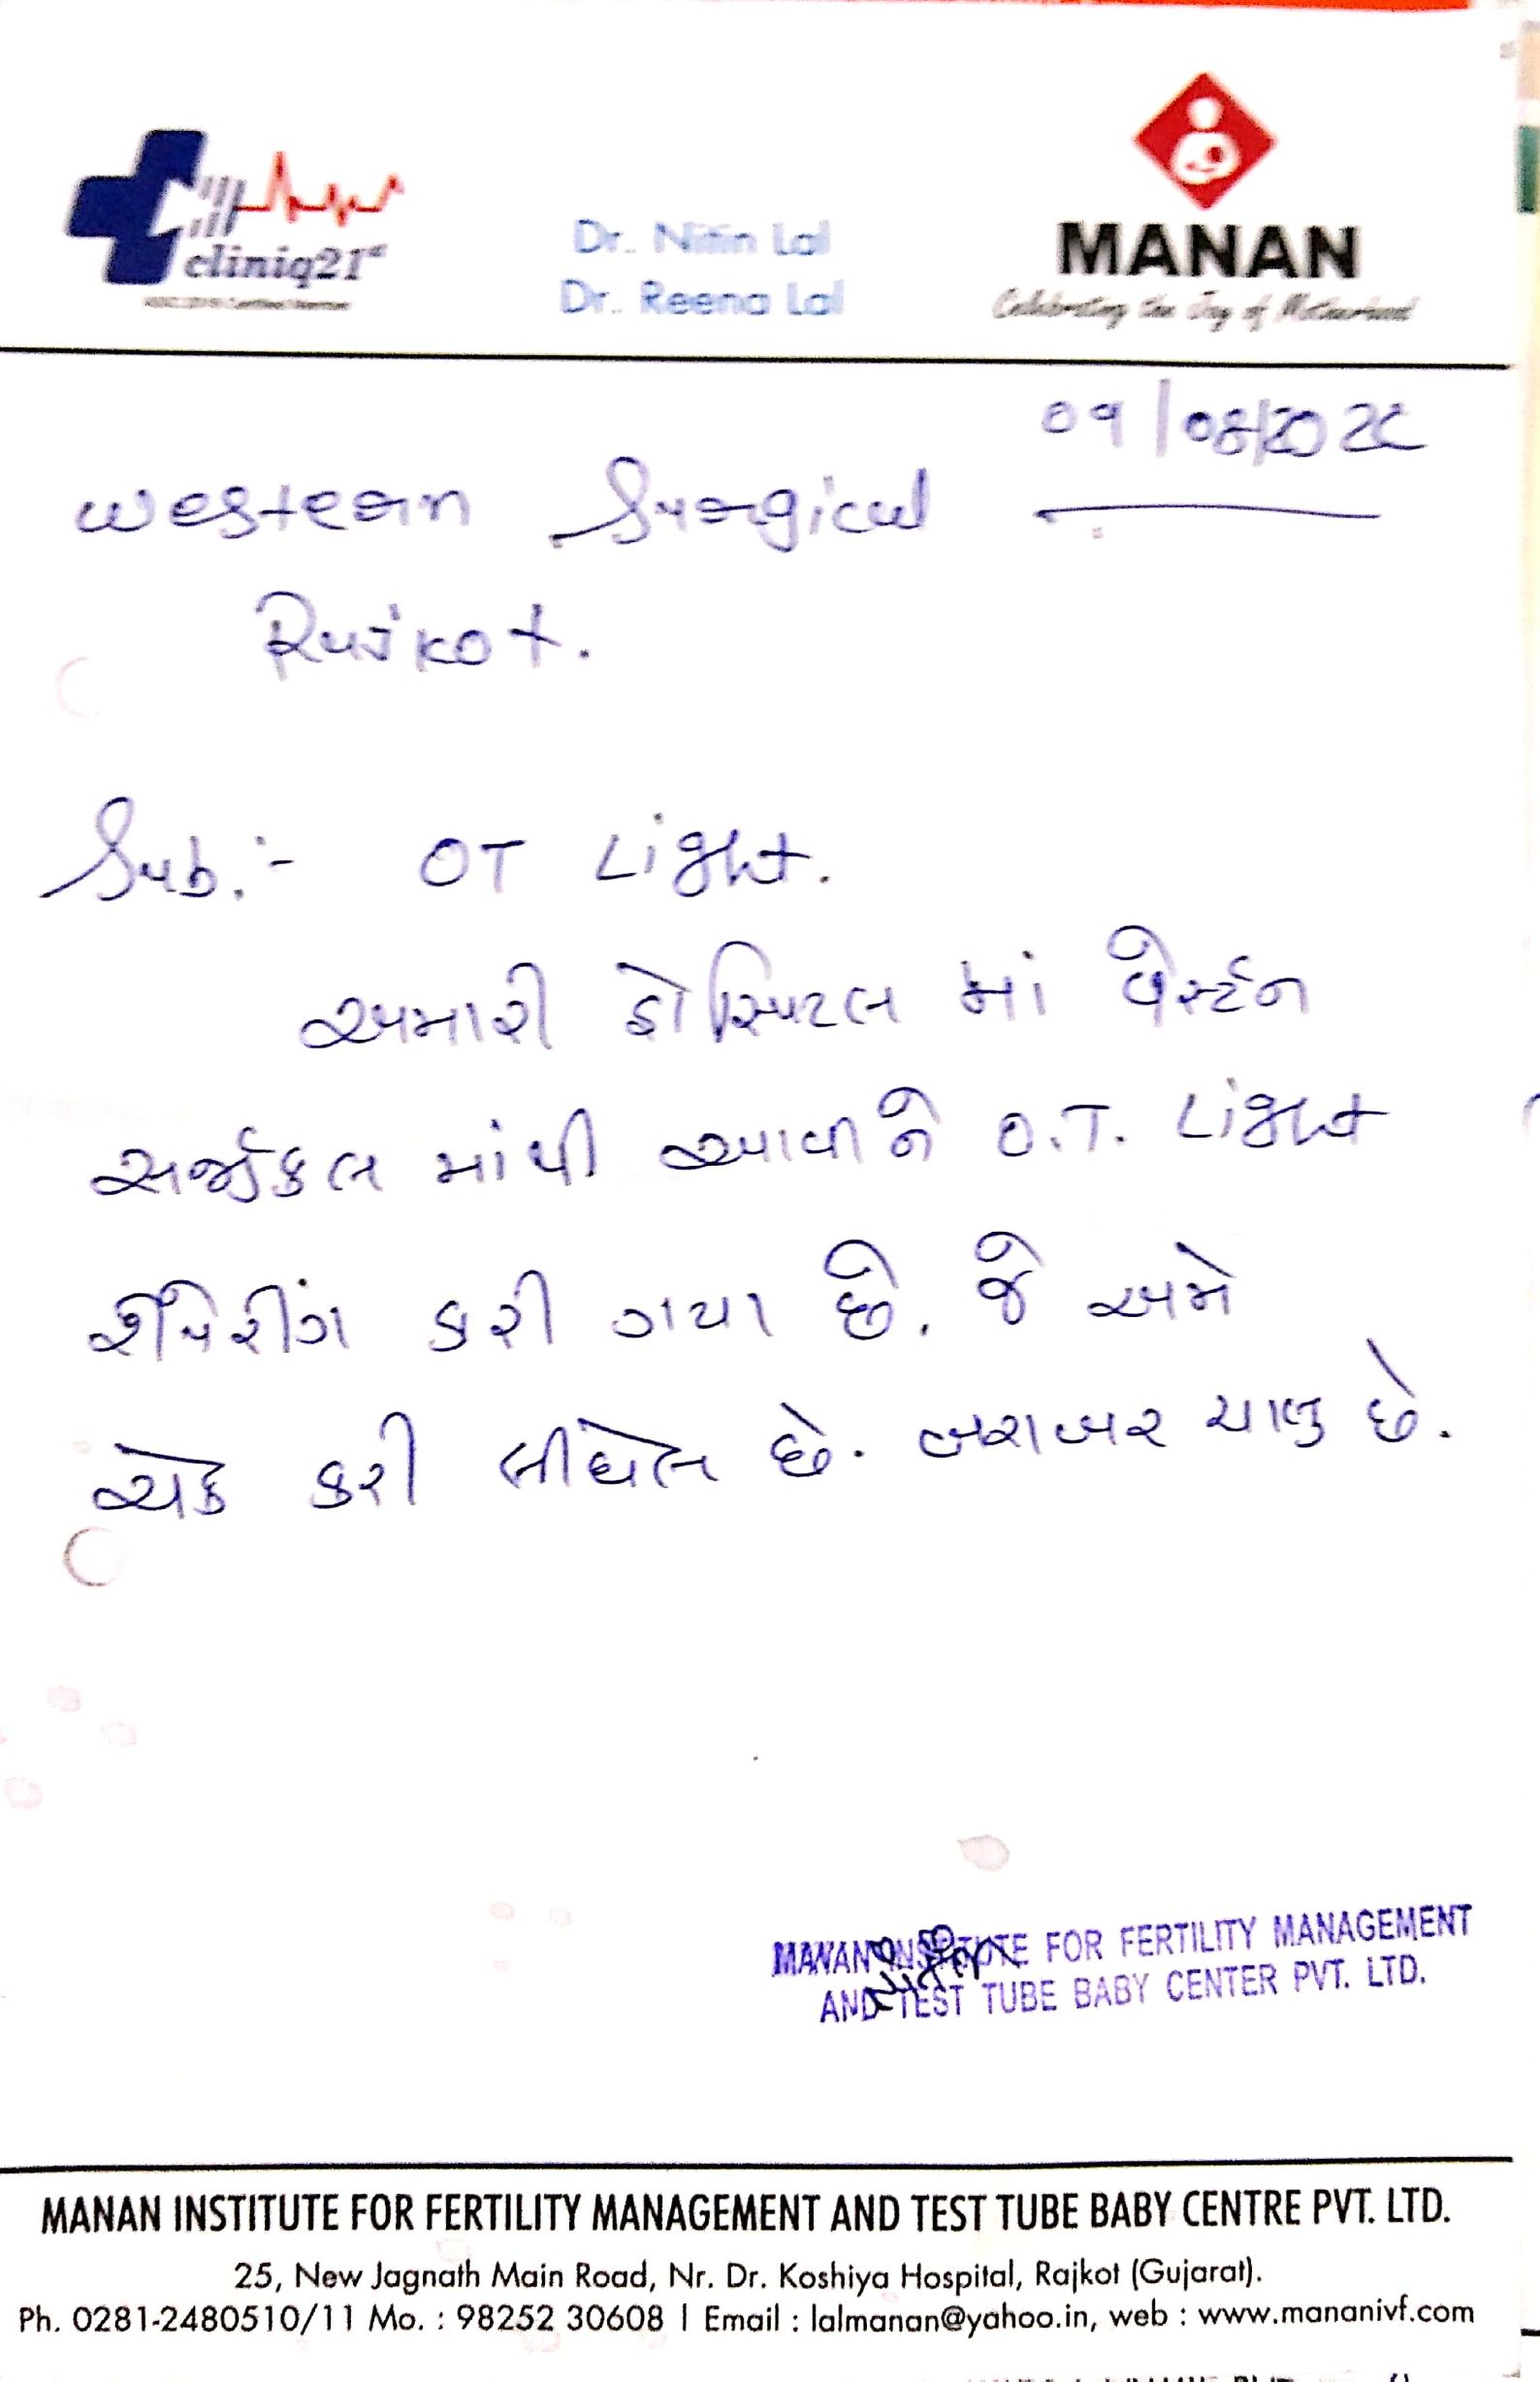 cliniq21st
Dr. Nitin Lal
Dr. Reena Lal
MANAN
Celebrating the Joy of Motherhood
09/08/2022
Western Surgical
Rajkot.
Sub.:- OT Light.
અમારી હોસ્પિટલ માં વેસ્ટર્ન
સર્જીકલ માંથી આવીને O.T. Light
રીપેરીંગ કરી ગયા છે. જે અમે
ચેક કરી લીધેલ છે. બરાબર ચાલુ છે.
MANAN INSTITUTE FOR FERTILITY MANAGEMENT
AND TEST TUBE BABY CENTER PVT. LTD.
MANAN INSTITUTE FOR FERTILITY MANAGEMENT AND TEST TUBE BABY CENTRE PVT. LTD.
25, New Jagnath Main Road, Nr. Dr. Koshiya Hospital, Rajkot (Gujarat).
Ph. 0281-2480510/11 Mo. : 98252 30608 | Email : lalmanan@yahoo.in, web : www.mananivf.com